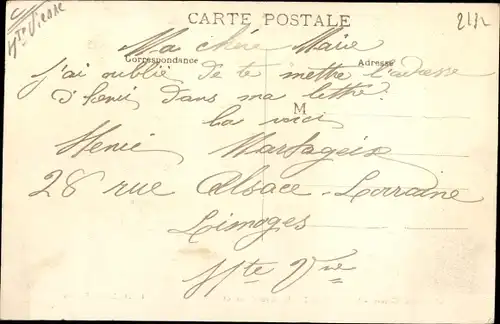 CARTE POSTALE
Hte Vienne
2412
Correspondance
Adresse
M
Ma chère Marie
j'ai oublié de te mettre l'adresse
d'Henri dans ma lettre.
La voici
Henri
28 rue Alsace-Lorraine
Limoges
Hte Vne